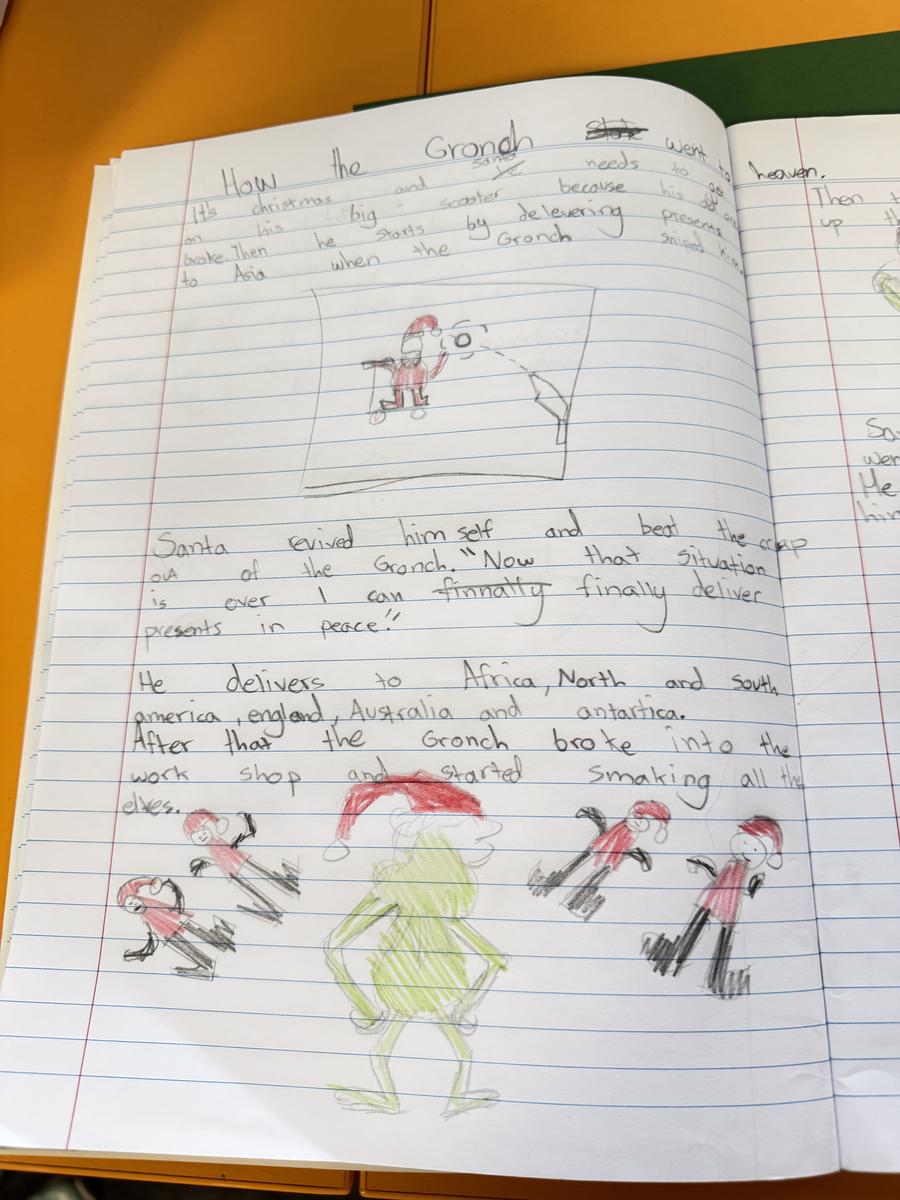 How the Gronch went to heaven.
It's christmas and santa needs to go
on his big scooter because his
broke. Then he starts by delevering presents
to Asia when the Gronch sniped him.
Santa revived him self and beat the crap
out of the Gronch. "Now that situation
is over I can finnally finally deliver
presents in peace!"
He delivers to Africa, North and south
america, england, Australia and antartica.
After that the Gronch broke into the
work shop and started smaking all the
elves.
Then
up
Sa
wer
He
him